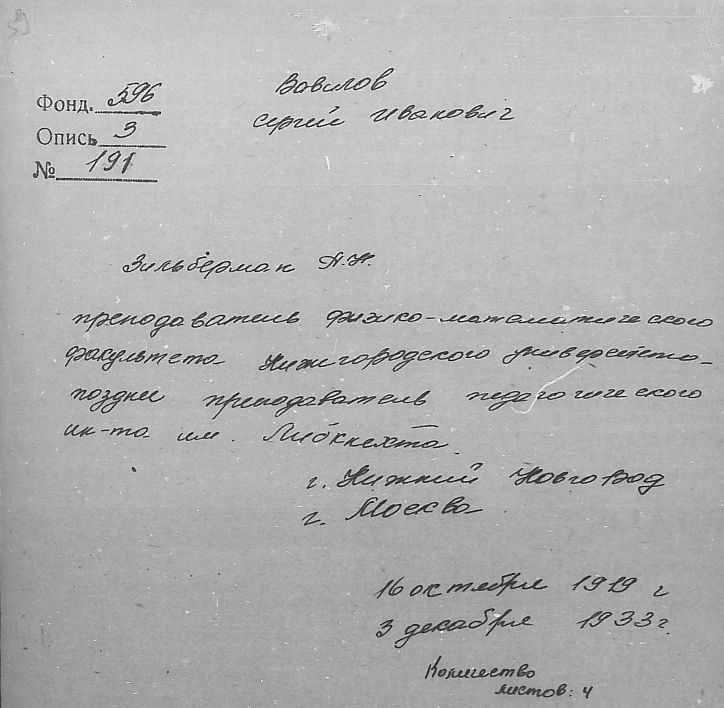 Фонд. 596
Опись 3
№ 191
Вавилов
Сергей Иванович
Зильберман А.Н.
преподаватель физико-математического
факультета Нижгородского университета
поздне преподаватель педагогического
ин-та им. Либкнехта.
г. Нижний Новгород
г. Москва
16 октября 1919 г
3 декабря 1933 г.
Количество
листов: 4